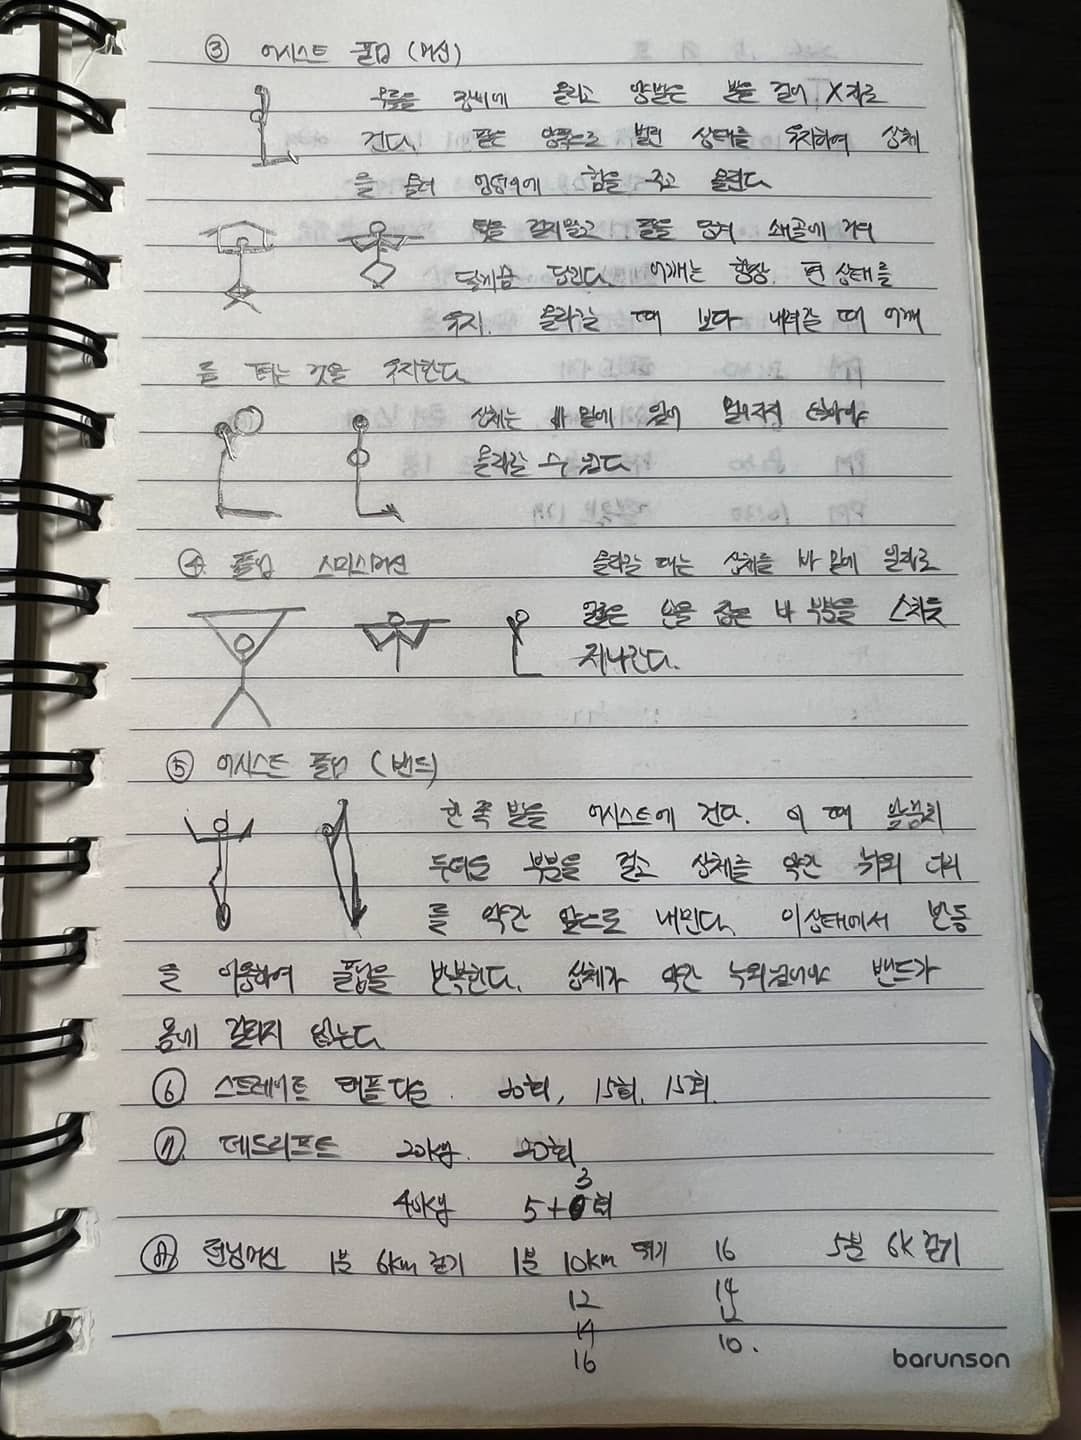 ③ 어시스트 풀업 (머신)
무릎을 장비에 올리고 양발은 발을 걸어 X자로
건다. 팔은 양쪽으로 벌린 상태를 유지하여 상체
를 눌러 엉덩이에 힘을 주고 올린다
턱을 들고 팔을 당겨 쇄골에 거의
닿게끔 당긴다. 어깨는 항상 편 상태를
유지. 올라갈 때 보다 내려갈 때 어깨
를 펴는 것을 유지한다.
상체는 바 밑에 있어
올라갈 수 있다
④ 풀업 스미스머신
올라갈 때는 상체를 바 밑에
얼굴은 손을 잡은 바 부분을 스치듯
지나간다.
⑤ 어시스트 풀업 (밴드)
한 쪽 발을 어시스트에 건다. 이 때 발뭉치
부분을 걸고 상체를 약간 눕혀 다리
를 약간 앞으로 내민다. 이상태에서 반동
을 이용하여 풀업을 반복한다. 상체가 약간 밴드가
몸에 걸리지 않는다
⑥ 스트레이트 암풀다운. 20회, 15회, 15회.
⑦ 데드리프트 20kg. 20회
3
40kg 5+회
⑧ 런닝머신 1분 6km 걷기 1분 10km 뛰기 16 5분 6k 걷기
12 14
14 12
16 10.
barunson